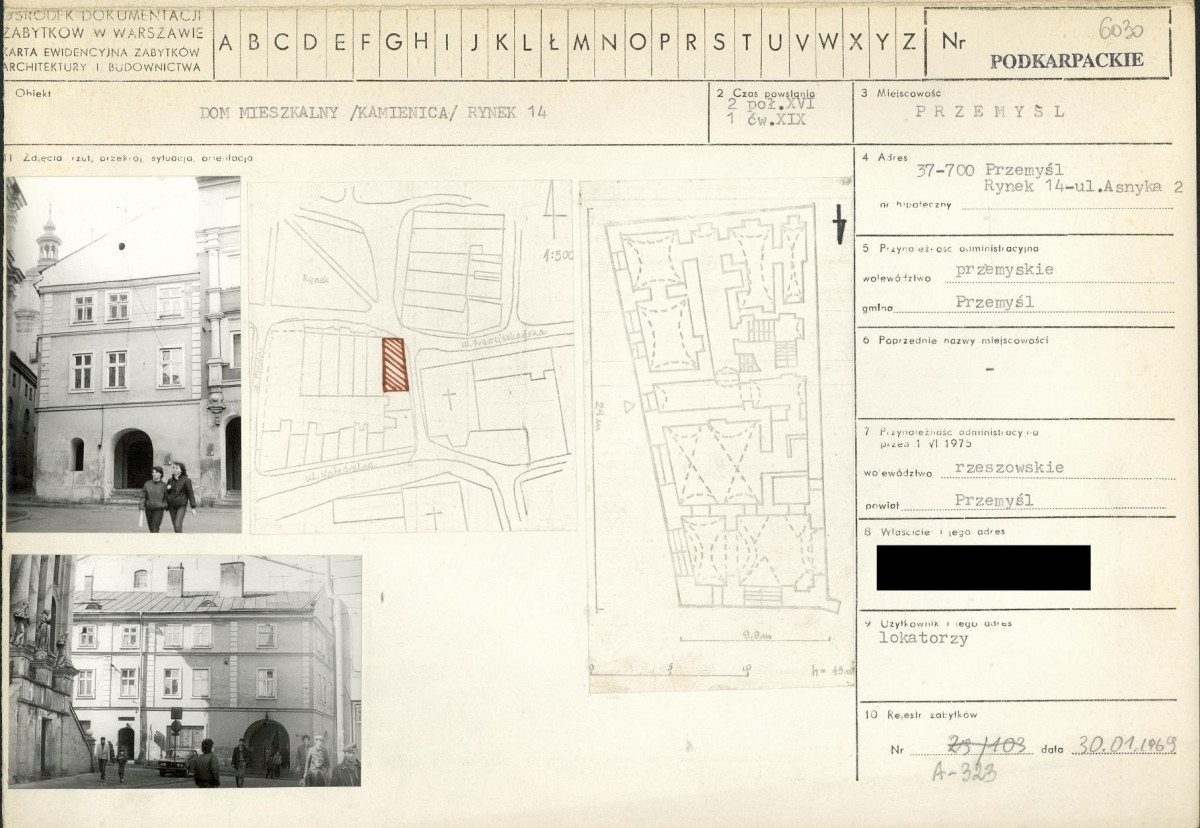 OŚRODEK DOKUMENTACJI
ZABYTKÓW W WARSZAWIE
KARTA EWIDENCYJNA ZABYTKÓW
ARCHITEKTURY I BUDOWNICTWA
A B C D E F G H I J K L Ł M N O P R S T U V W X Y Z
Nr
6030
PODKARPACKIE
Obiekt
DOM MIESZKALNY /KAMIENICA/ RYNEK 14
2 Czas powstania
2 poł.XVI
1 ćw.XIX
3 Miejscowość
PRZEMYŚL
11 Zdjęcia rzut, przekrój, sytuacja, orientacja
1:500
Rynek
ul. Franciszkańska
ul. Katedralna
24 m
9,9m
0 5 10
4 Adres
37-700 Przemyśl
Rynek 14-ul.Asnyka 2
nr hipoteczny
5 Przynależność administracyjna
województwo przemyskie
gmina Przemyśl
6 Poprzednie nazwy miejscowości
-
7 Przynależność administracyjna
przed 1 VI 1975
województwo rzeszowskie
powiat Przemyśl
8 Właściciel i jego adres
9 Użytkownik i jego adres
lokatorzy
10 Rejestr zabytków
Nr data 30.01.1969
A-323